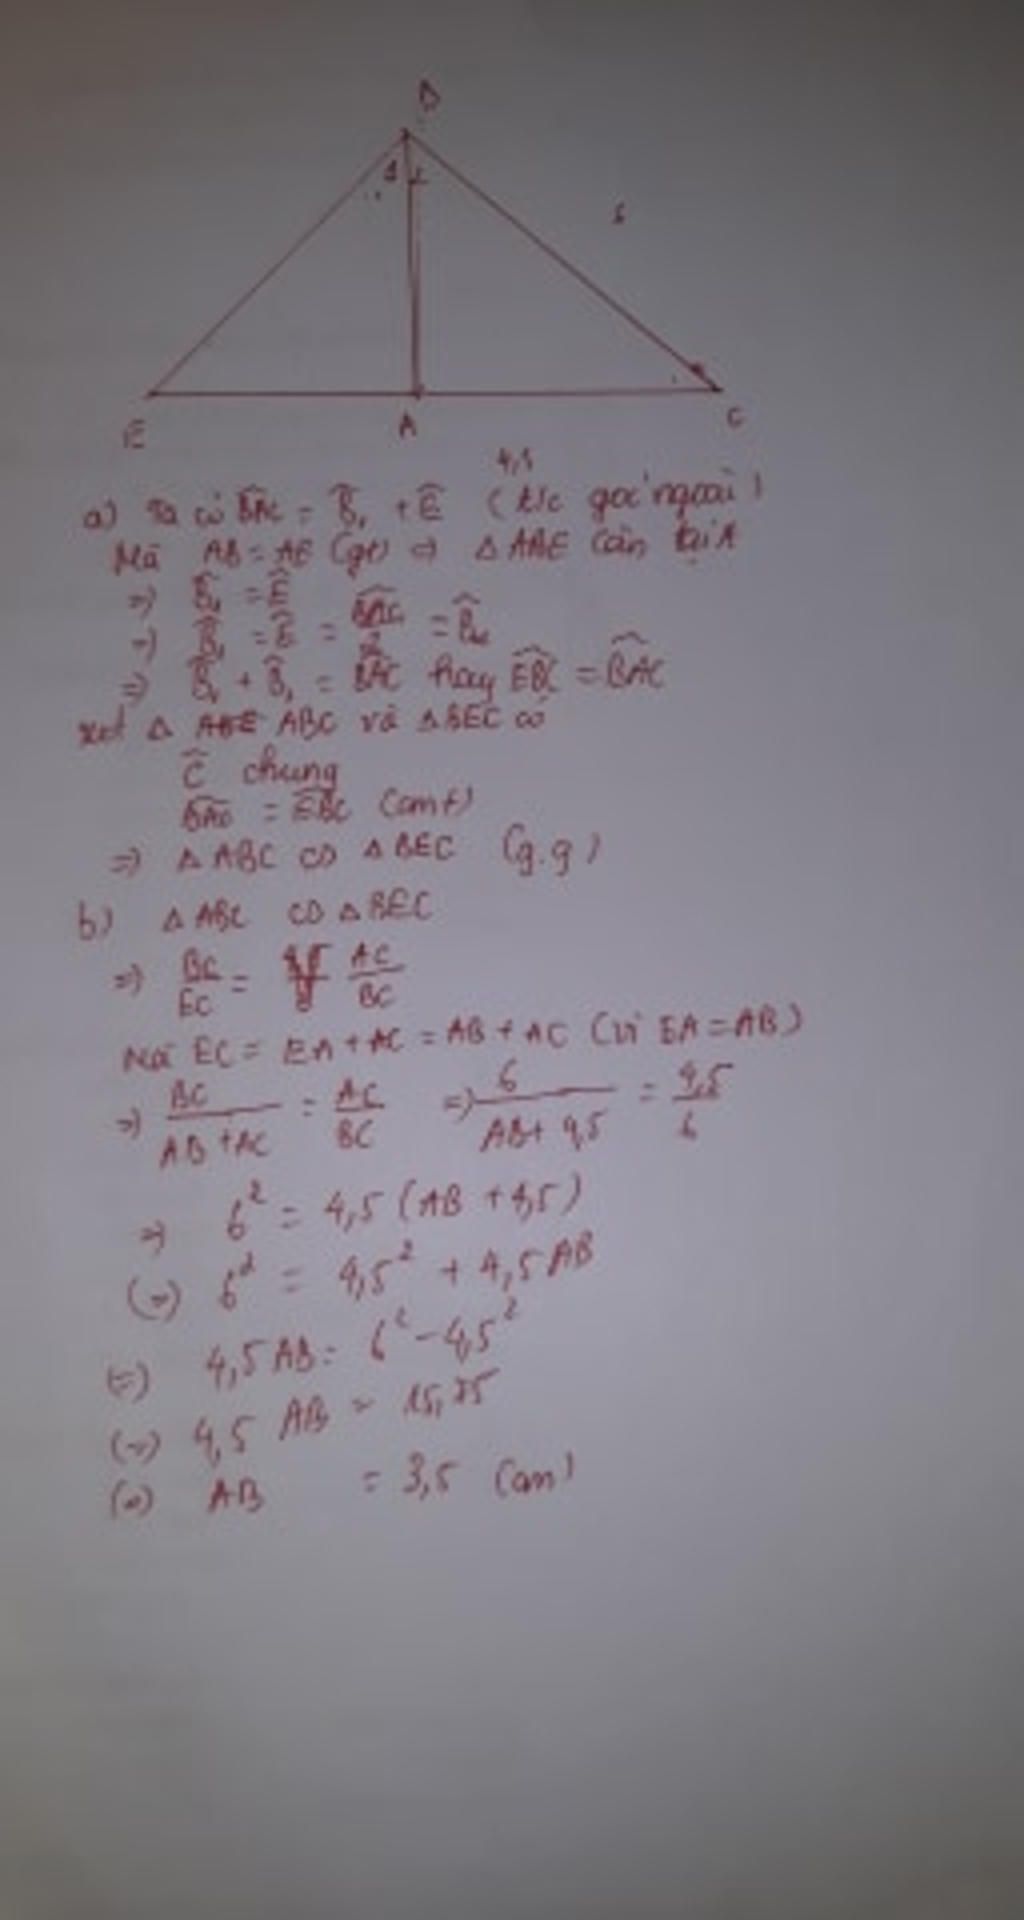 B
1 2
6
E A C
4,5
a) Ta có B̂AC = B̂₁ + Ê (t/c góc ngoài)
Mà AB = AE (gt) => Δ ABE cân tại A
=> B̂₁ = Ê
=> B̂₁ = Ê = B̂AC/2 = B̂₂
=> B̂₁ + B̂₂ = B̂AC hay ÊBC = B̂AC
xét Δ ABC và Δ BEC có
Ĉ chung
B̂AC = ÊBC (cmt)
=> Δ ABC ∽ Δ BEC (g.g)
b) Δ ABC ∽ Δ BEC
=> BC/EC = AC/BC
Mà EC = EA + AC = AB + AC (vì EA = AB)
=> BC/(AB + AC) = AC/BC => 6/(AB + 4,5) = 4,5/6
=> 6² = 4,5 (AB + 4,5)
(=) 6² = 4,5² + 4,5 AB
(=) 4,5 AB = 6² - 4,5²
(=) 4,5 AB = 15,75
(=) AB = 3,5 (cm)